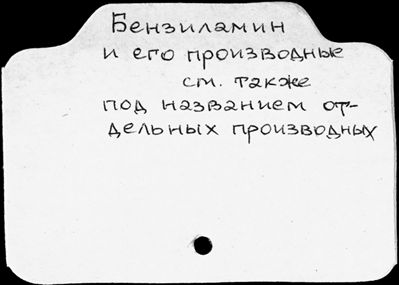 Бензиламин
и его производные
см. также
под названием от-
дельных производных